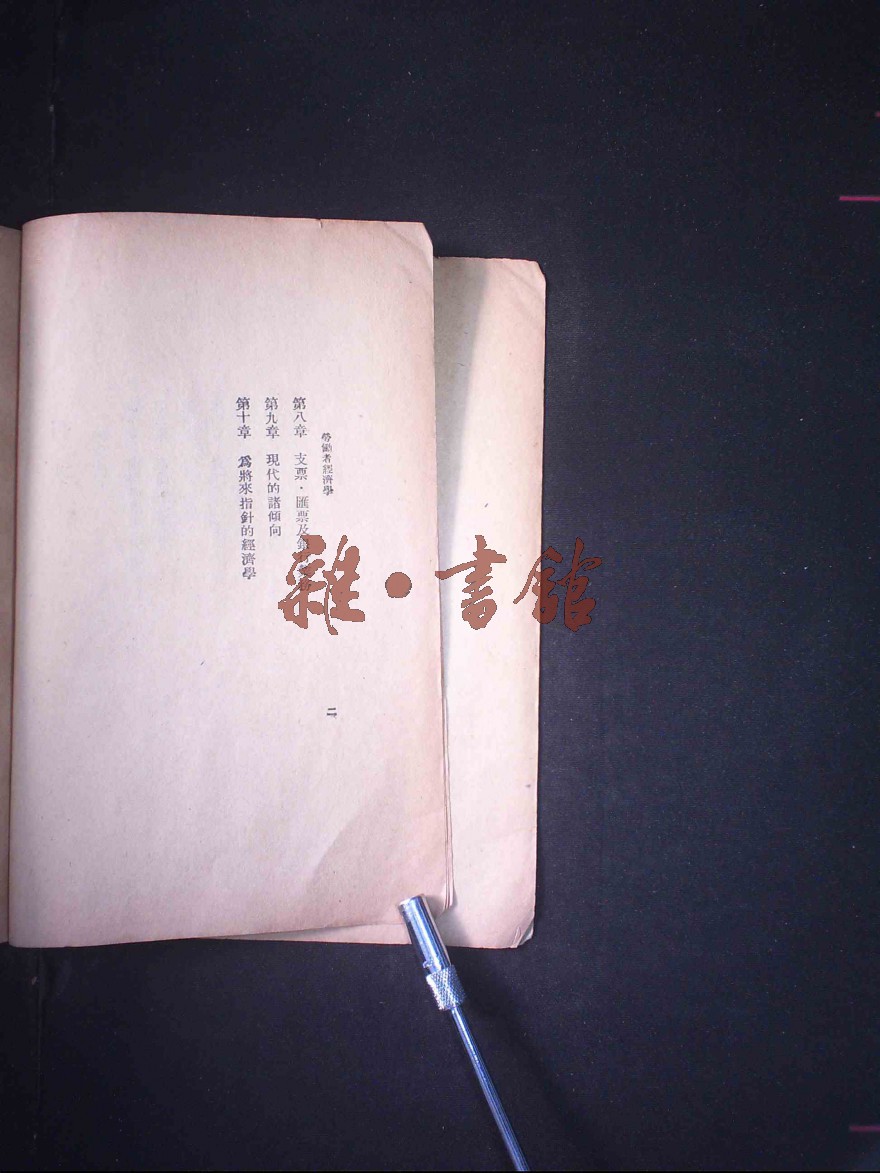 勞働者經濟學
第八章　支票・匯票及
第九章　現代的諸傾向
第十章　爲將來指針的經濟學
二
雜・書館